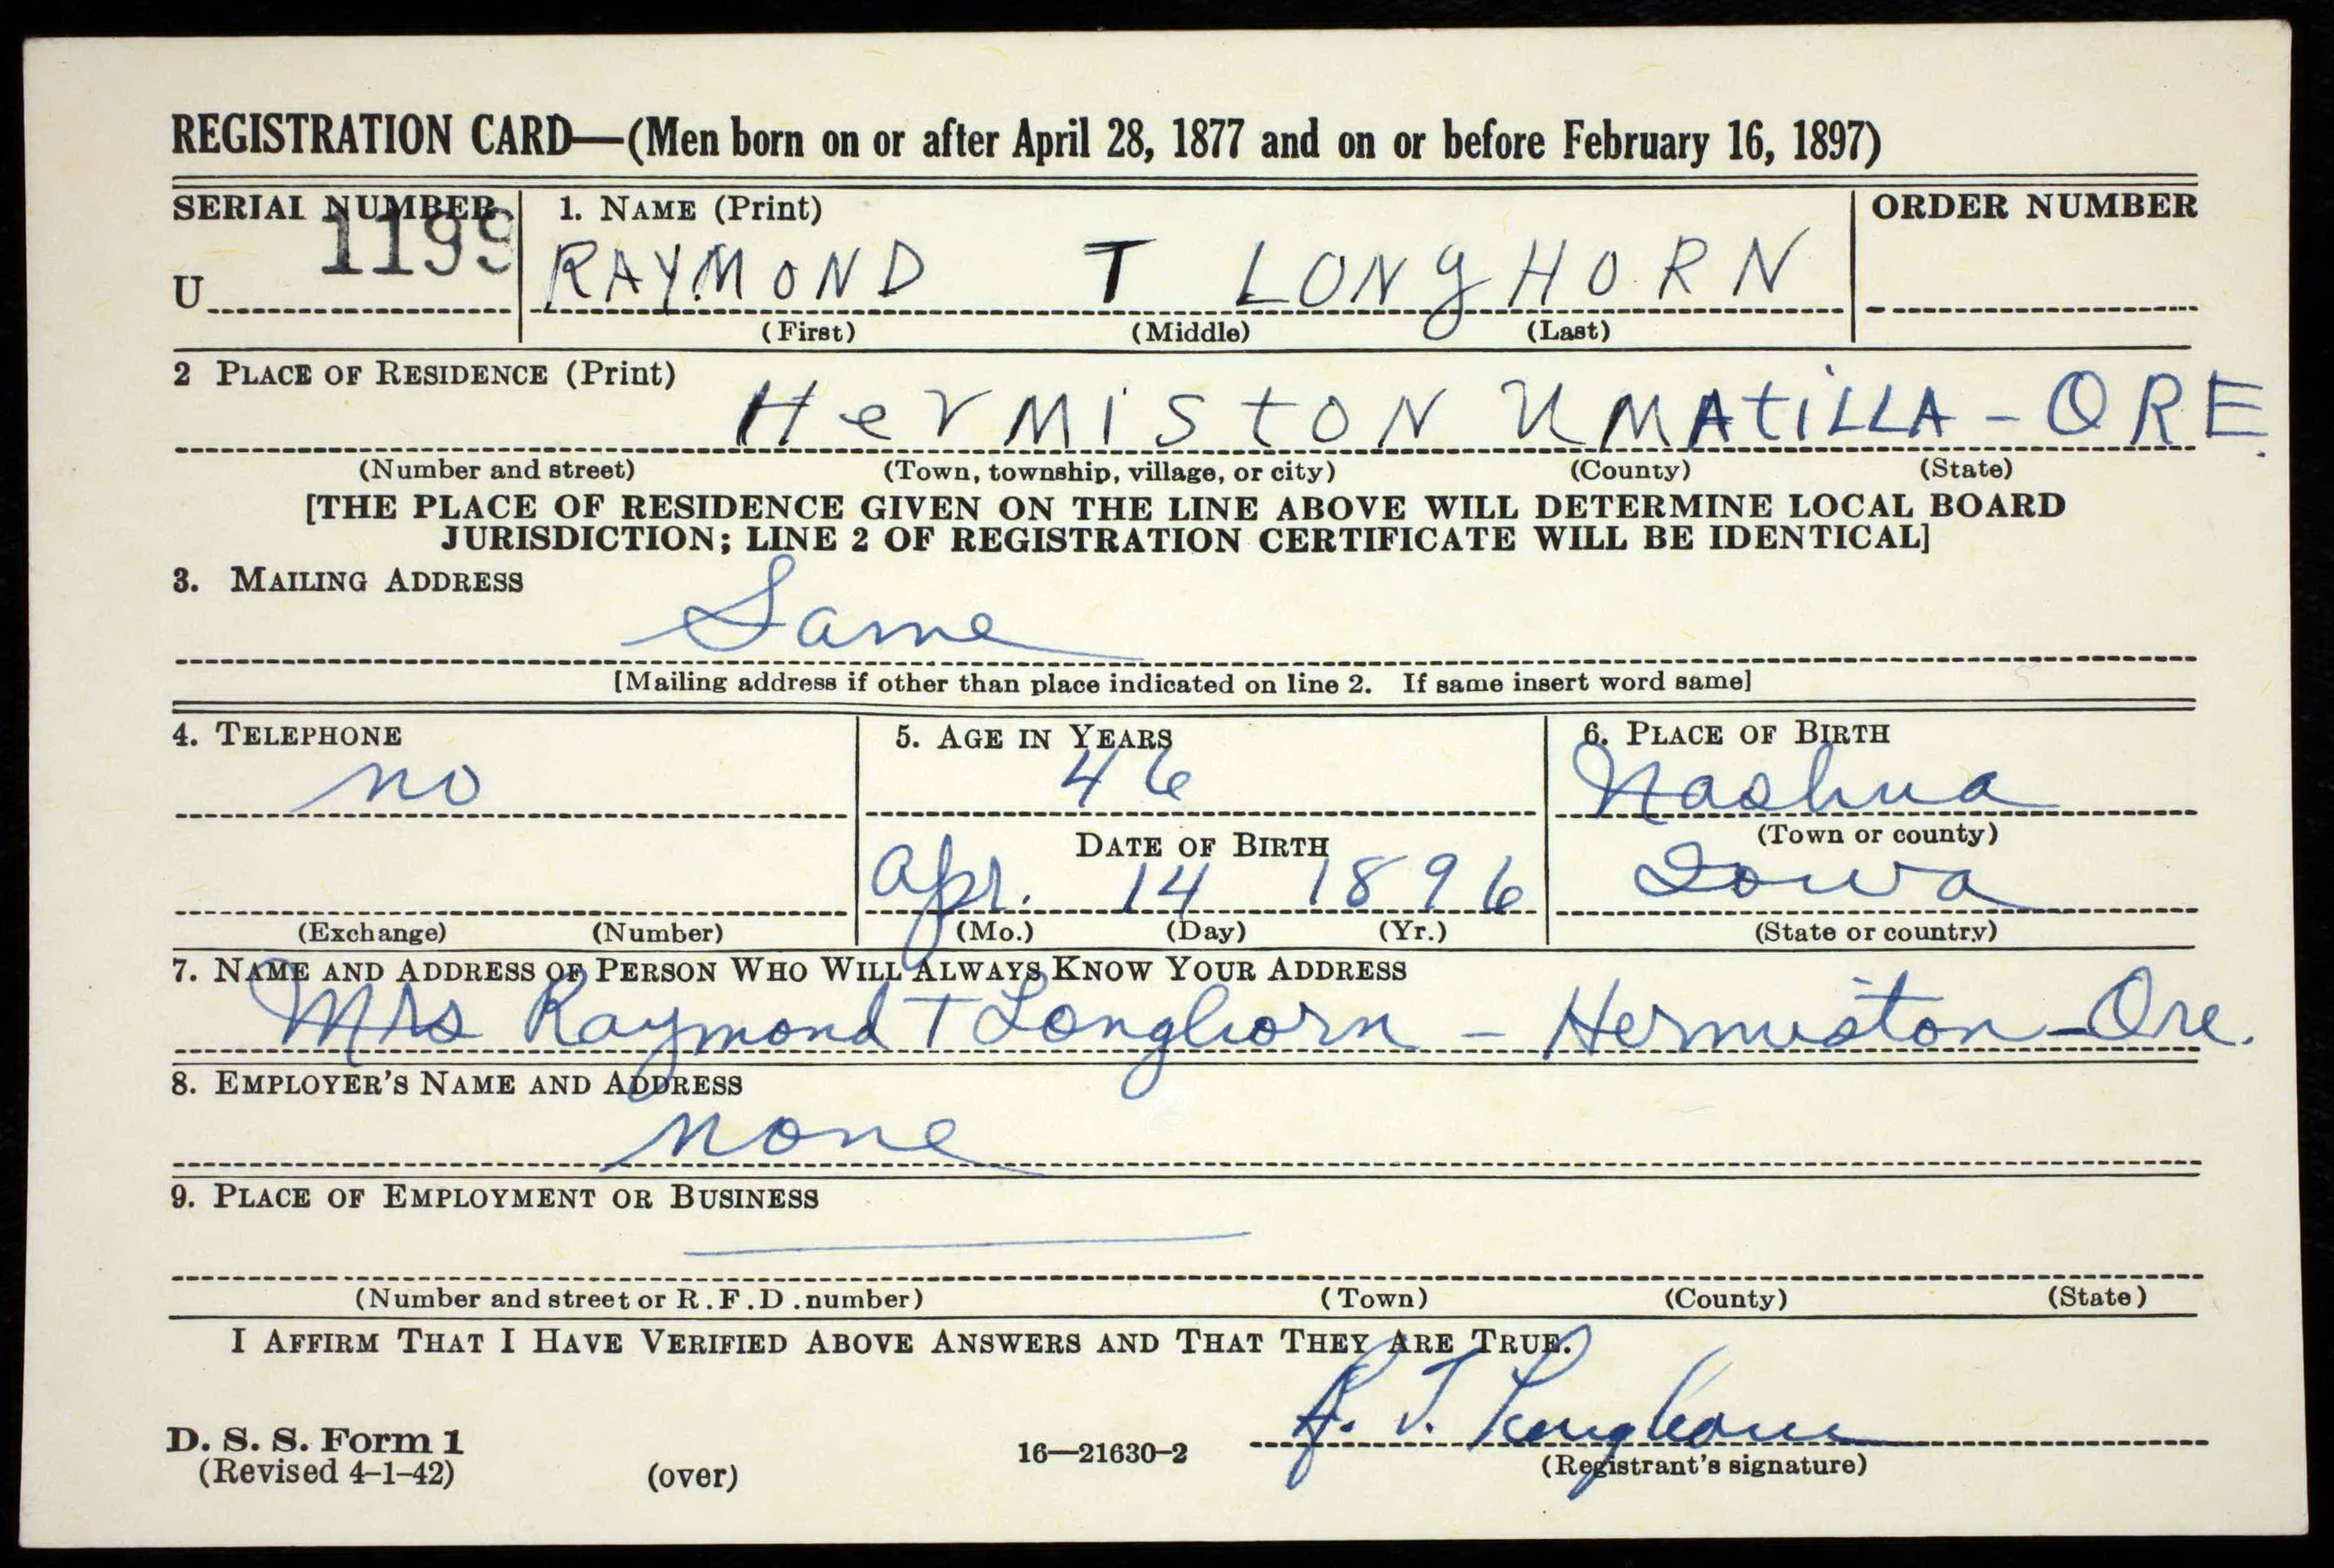 REGISTRATION CARD—(Men born on or after April 28, 1877 and on or before February 16, 1897)
SERIAL NUMBER 1. NAME (Print) ORDER NUMBER
1199
U RAYMOND T LONgHORN
(First) (Middle) (Last)
2 PLACE OF RESIDENCE (Print)
HerMiStON UMAtiLLA - ORE.
(Number and street) (Town, township, village, or city) (County) (State)
[THE PLACE OF RESIDENCE GIVEN ON THE LINE ABOVE WILL DETERMINE LOCAL BOARD
JURISDICTION; LINE 2 OF REGISTRATION CERTIFICATE WILL BE IDENTICAL]
3. MAILING ADDRESS
Same
[Mailing address if other than place indicated on line 2. If same insert word same]
4. TELEPHONE 5. AGE IN YEARS 6. PLACE OF BIRTH
no 46 Nashua
DATE OF BIRTH (Town or county)
Apr. 14 1896 Iowa
(Exchange) (Number) (Mo.) (Day) (Yr.) (State or country)
7. NAME AND ADDRESS OF PERSON WHO WILL ALWAYS KNOW YOUR ADDRESS
Mrs Raymond T Longhorn - Hermiston - Ore.
8. EMPLOYER'S NAME AND ADDRESS
none
9. PLACE OF EMPLOYMENT OR BUSINESS
(Number and street or R.F.D. number) (Town) (County) (State)
I AFFIRM THAT I HAVE VERIFIED ABOVE ANSWERS AND THAT THEY ARE TRUE.
R. T. Longhorn
D. S. S. Form 1
(Revised 4-1-42) (over) 16—21630-2 (Registrant's signature)